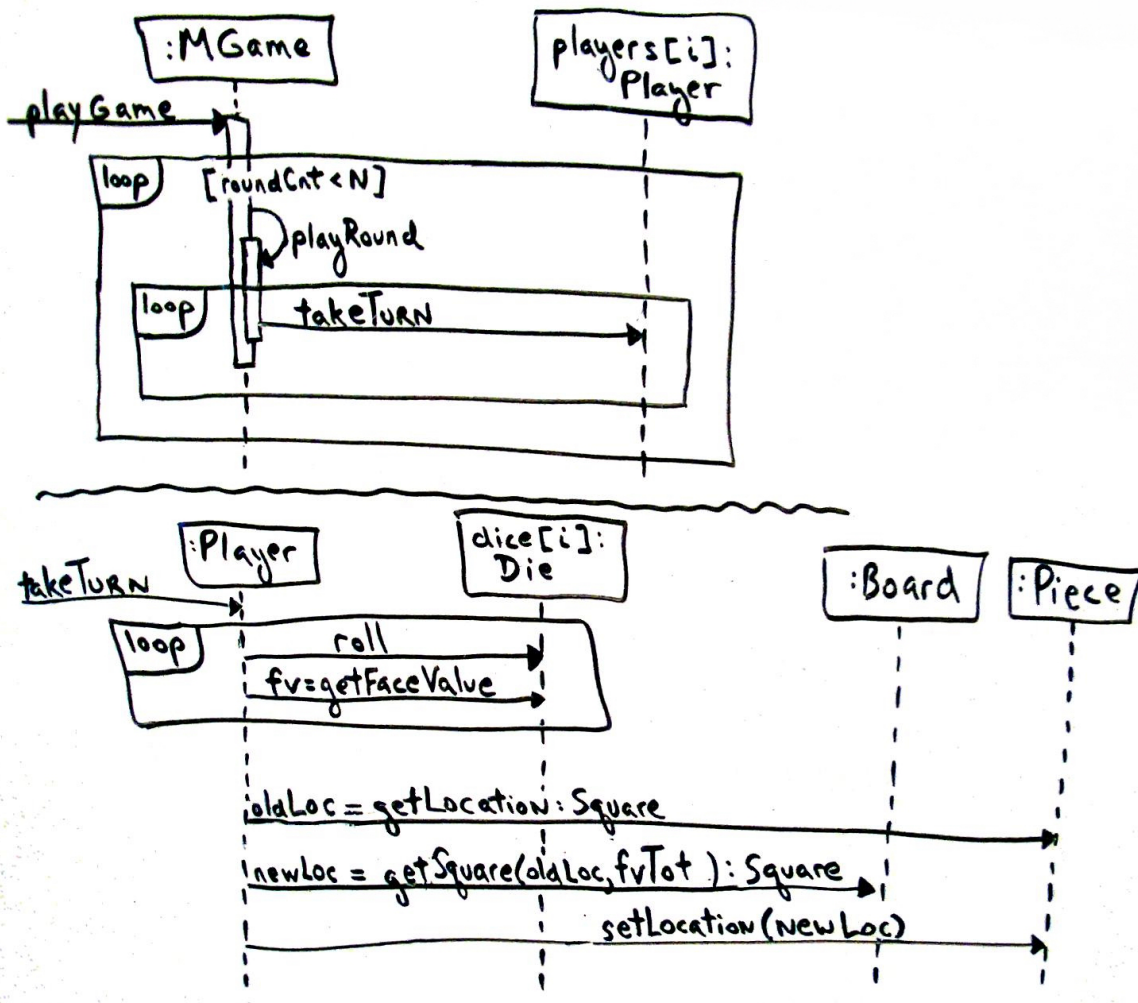 :MGame
players[i]:
Player
playGame
loop
[roundCnt<N]
playRound
loop
takeTURN
:Player
dice[i]:
Die
:Board
:Piece
takeTURN
loop
roll
fv=getFaceValue
oldLoc = getLocation: Square
newLoc = getSquare(oldLoc, fvTot ): Square
setLocation(NewLoc)